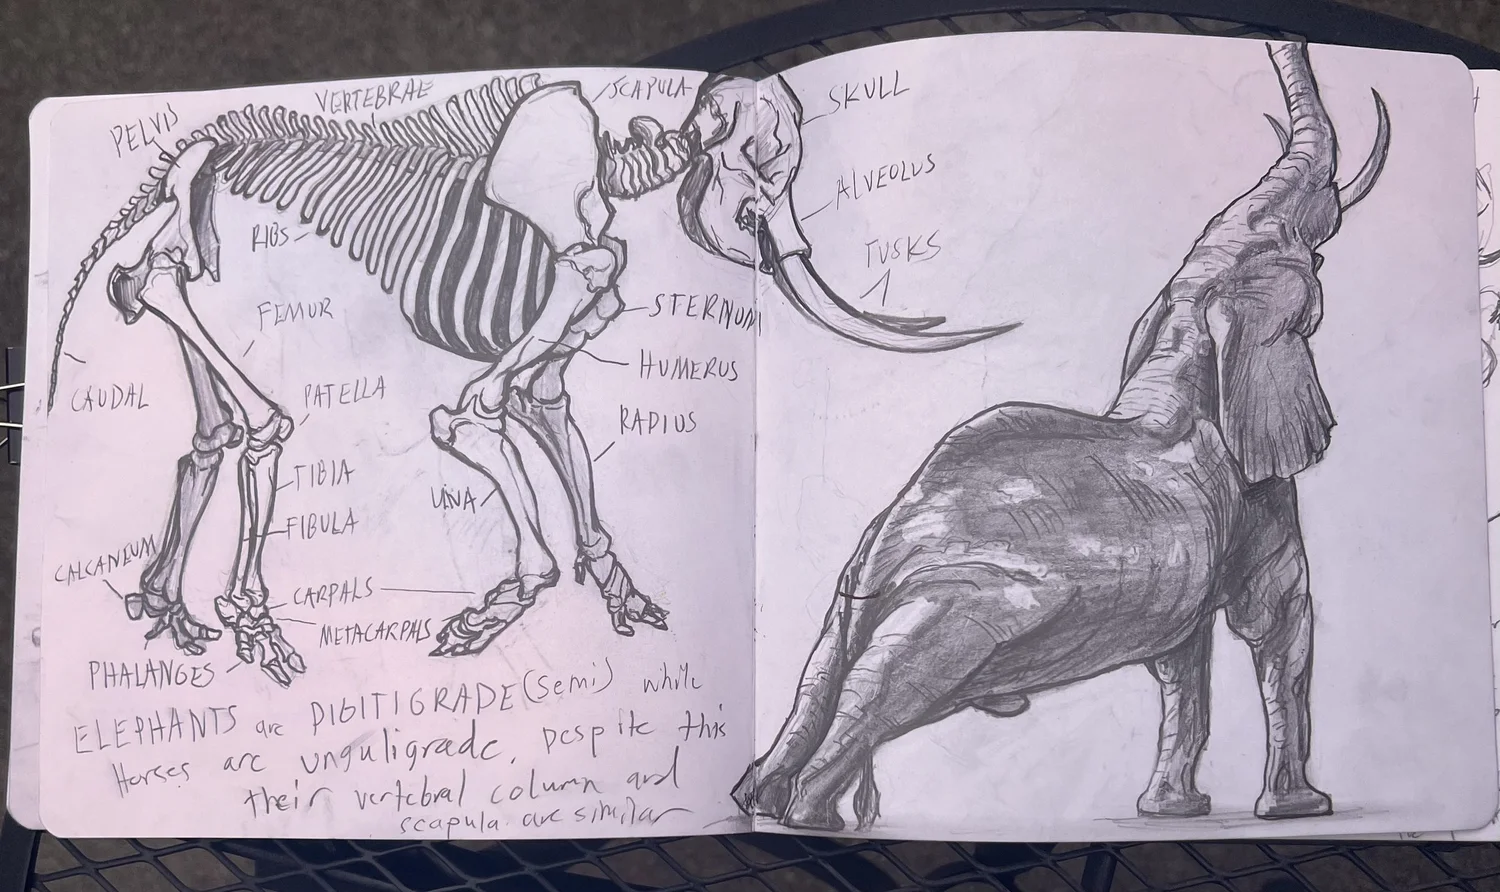 PELVIS
VERTEBRAE
SCAPULA
SKULL
ALVEOLUS
TUSKS
RIBS
FEMUR
STERNUM
CAUDAL
PATELLA
HUMERUS
RADIUS
TIBIA
ULNA
FIBULA
CALCANEUM
CARPALS
METACARPALS
PHALANGES
ELEPHANTS are DIGITIGRADE (semi) while
Horses are unguligrade, Despite this
their vertebral column and
scapula are similar